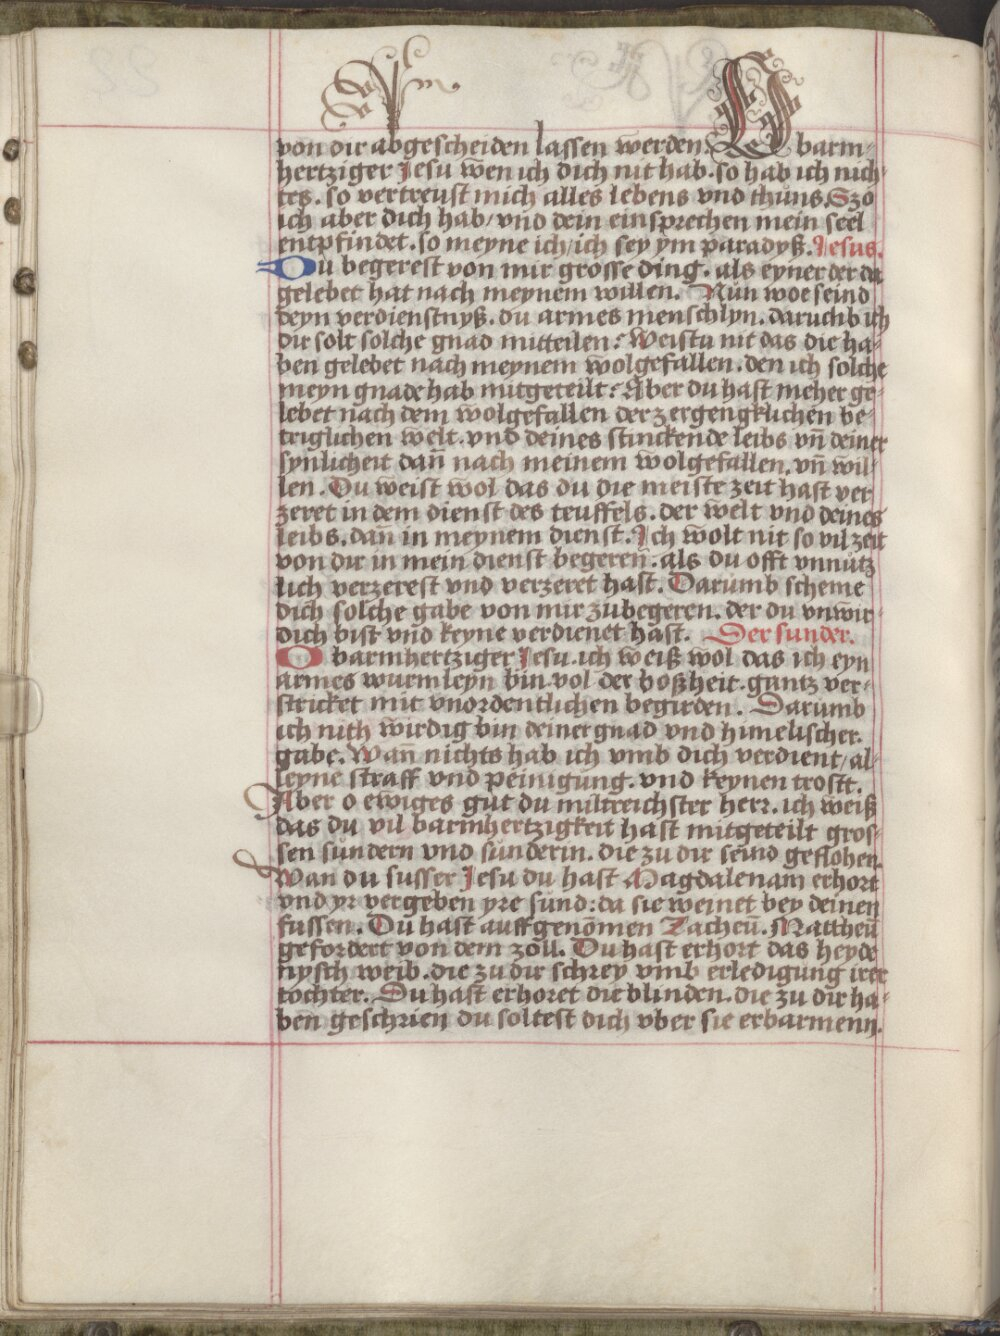 von dir abgescheiden lassen werden. O barm-
hertziger Jesu wen ich dich nit hab. so hab ich nich-
tes. so vertreust mich alles lebens vnd thuns. Szo
ich aber dich hab/ vnd dein einsprechen mein seel
entpfindet. so meyne ich/ ich sey ym paradyß. Jesus.
Du begerest von mir grosse ding. als eyner der da
gelebet hat nach meynem willen. Nun woe seind
deyn verdienstnyß. du armes menschlyn. daruchb ich
dir solt solche gnad mitteilen? Weistu nit das die ha-
ben gelebet nach meynem wolgefallen. den ich solche
meyn gnade hab mitgeteilt? Aber du hast meher ge-
lebet nach dem wolgefallen der zergengklichen be-
triglichen welt. vnd deines stinckende leibs vn̄ deiner
synlicheit dan̄ nach meinem wolgefallen. vn̄ wil-
len. Du weist wol das du die meiste zeit hast ver
zeret in dem dienst des teuffels. der welt vnd deines
leibs. dan̄ in meynem dienst. Ich wolt nit so vil zeit
von dir in mein dienst begeren. als du offt vnnutz
lich verzerest vnd verzeret hast. Darumb scheme
dich solche gabe von mir zubegeren. der du vnwir-
dich bist vnd keyne verdienet hast. Der sunder.
O barmhertziger Jesu. ich weiß wol das ich eyn
armes wurmleyn bin vol der boßheit. gantz ver-
stricket mit vnordentlichen begirden. Darumb
ich nith wirdig bin deiner gnad vnd himelischer.
gabe. Wan̄ nichts hab ich vmb dich verdient/ al-
leyne straff vnd peinigung. vnd keynen trostt.
Aber o ewiges gut du miltreichster herr. ich weiß
das du vil barmhertzigkeit hast mitgeteilt gros-
sen sundern vnd sunderin. die zu dir seind geflohen.
Wan du susser Jesu du hast Magdalenam erhort
vnd yr vergeben yre sund: da sie weinet bey deinen
fussen. Du hast auffgenōmen Zacheū. Mattheū
gefordert von dem zoll. Du hast erhort das heyde
nysch weib. die zu dir schrey vmb erledigung irer
tochter. Du hast erhoret die blinden. die zu dir ha-
ben geschrien du soltest dich vber sie erbarmenn.